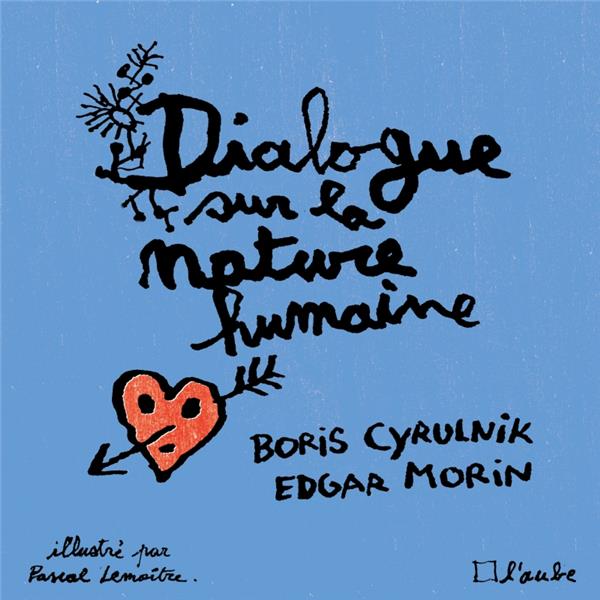 Dialogue
sur la
nature
humaine
BORIS CYRULNIK
EDGAR MORIN
illustré par
Pascal Lemaître.
l'aube